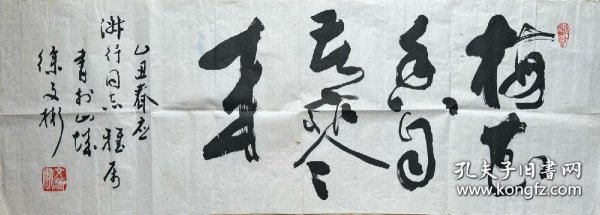 梅花
香自
苦寒
来
乙丑春应
行同志雅属
书于山城
徐文彬
孔夫子旧书网
www.kongfz.com